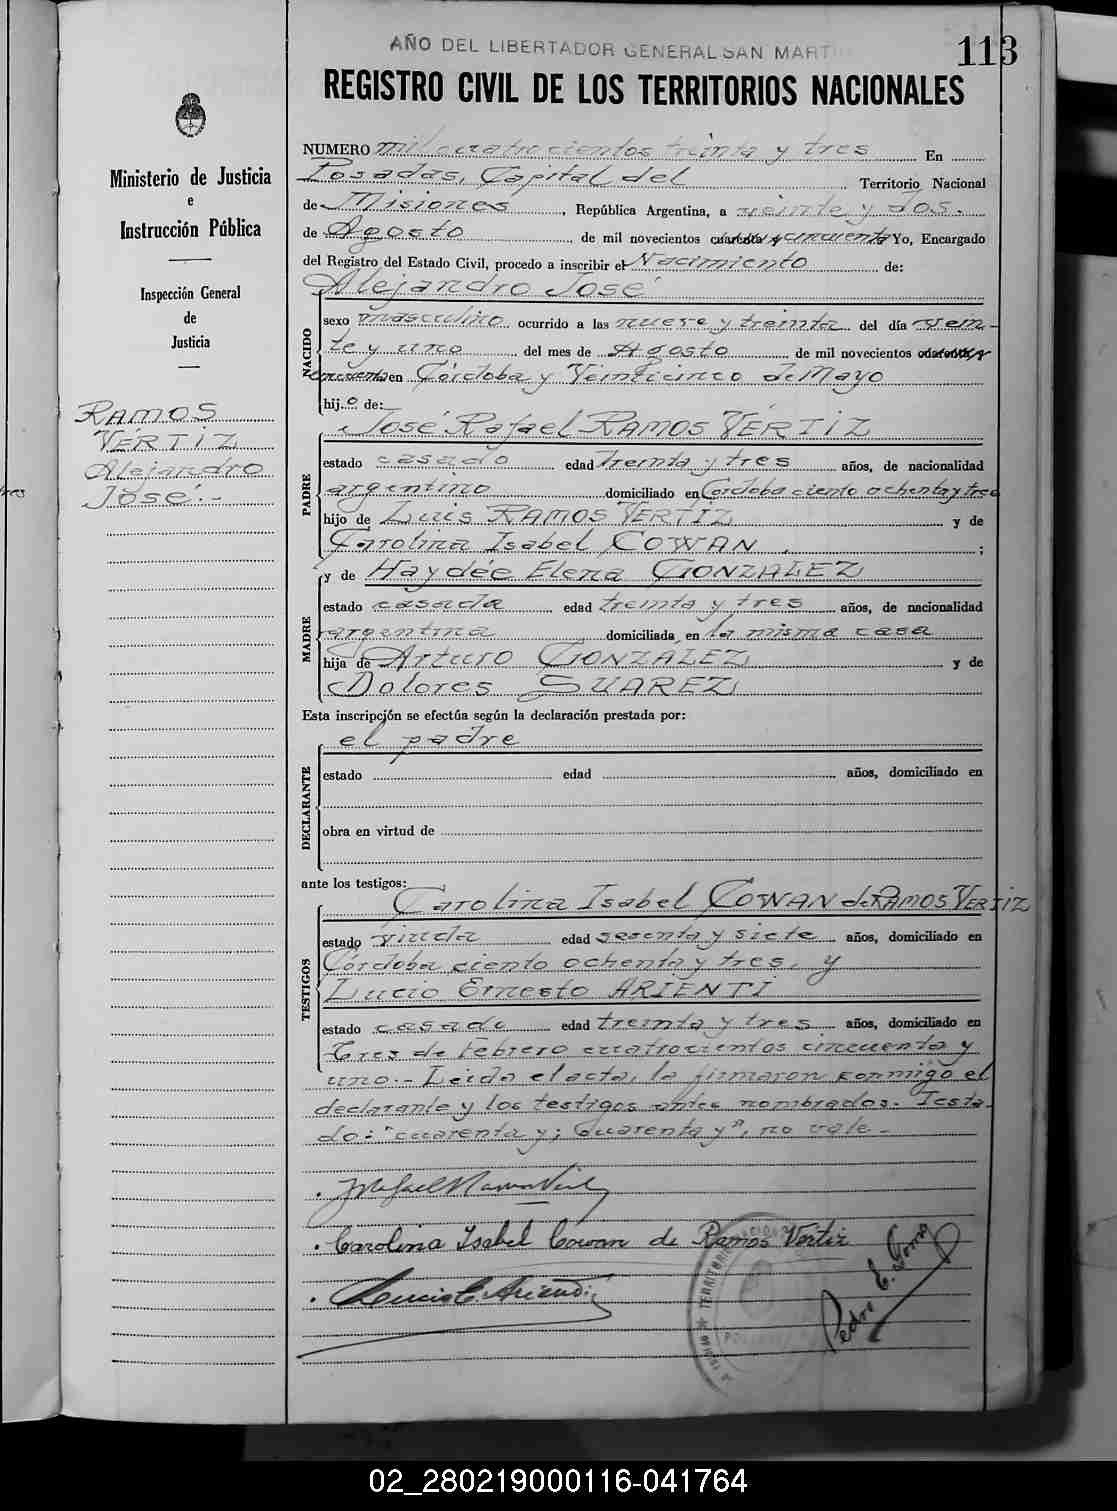 AÑO DEL LIBERTADOR GENERAL SAN MARTIN
113
REGISTRO CIVIL DE LOS TERRITORIOS NACIONALES
Ministerio de Justicia
e
Instrucción Pública
Inspección General
de
Justicia
RAMOS
VÉRTIZ
Alejandro
José.-
NUMERO mil cuatrocientos treinta y tres En
Posadas, Capital del Territorio Nacional
de Misiones, República Argentina, a veinte y dos.
de Agosto de mil novecientos cuarenta y cincuenta Yo, Encargado
del Registro del Estado Civil, procedo a inscribir el Nacimiento de:
Alejandro José
NACIDO
sexo masculino ocurrido a las nueve y treinta del día vein-
te y uno del mes de Agosto de mil novecientos cuarenta y
cincuenta en Córdoba y Veinticinco de Mayo
hijo de:
José Rafael RAMOS VÉRTIZ
PADRE
estado casado edad treinta y tres años, de nacionalidad
argentino domiciliado en Córdoba ciento ochenta y tres
hijo de Luis RAMOS VERTIZ y de
Carolina Isabel COWAN ;
y de Haydée Elena GONZALEZ
MADRE
estado casada edad treinta y tres años, de nacionalidad
argentina domiciliada en la misma casa
hija de Arturo GONZALEZ y de
Dolores SUAREZ
Esta inscripción se efectúa según la declaración prestada por:
el padre
DECLARANTE
estado edad años, domiciliado en
obra en virtud de
ante los testigos:
Carolina Isabel COWAN de RAMOS VERTIZ
TESTIGOS
estado viuda edad sesenta y siete años, domiciliado en
Córdoba ciento ochenta y tres, y
Lucio Ernesto ARIENTI
estado casado edad treinta y tres años, domiciliado en
Tres de Febrero cuatrocientos cincuenta y
uno.- Leida el acta, la firmaron conmigo el
declarante y los testigos antes nombrados. Testa-
do: "cuarenta y; cuarenta y", no vale.-
Carolina Isabel Cowan de Ramos Vértiz
Lucio E. Arienti
Pedro E.
TERRITORIO
02_280219000116-041764